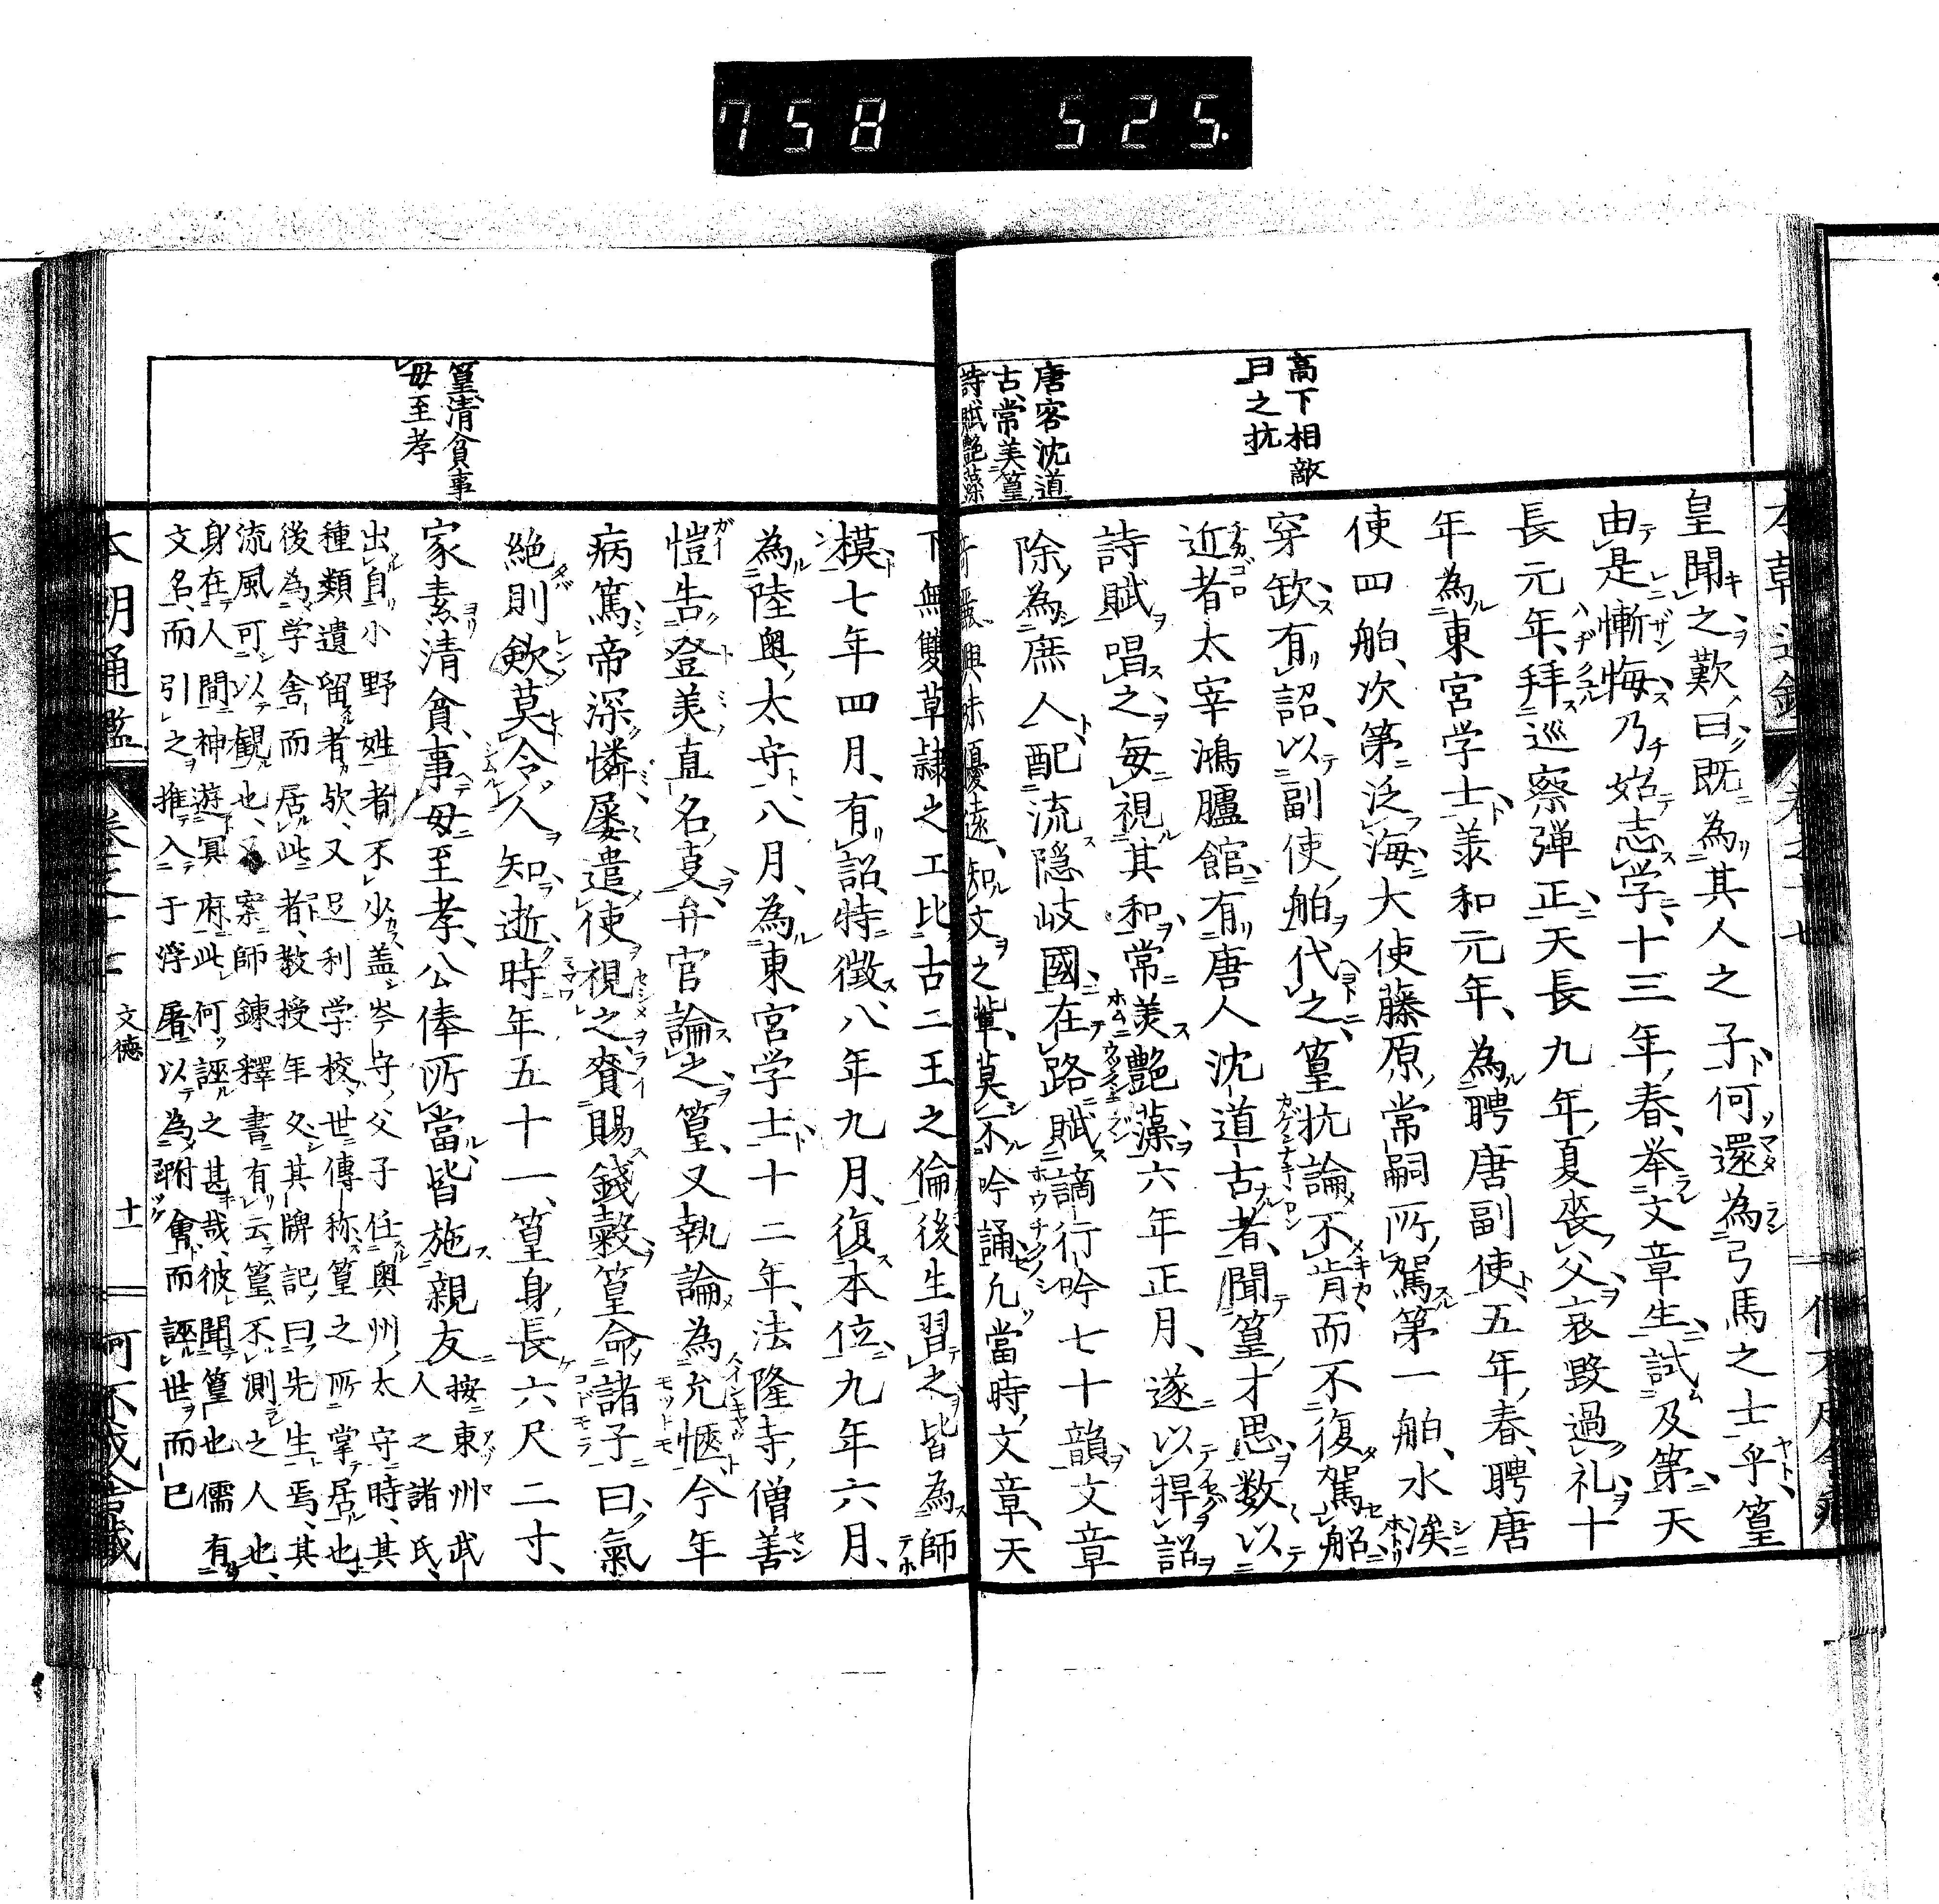 758 525
高下相敵
曰之抗
唐客沈道
古常美篁
詩賦艶藻
皇聞之歎曰既為其人之子何還為弓馬之士乎篁
由是慚悔乃始志学十三年春挙文章生試及第天
長元年拜巡察弾正天長九年夏喪父哀毀過礼十
年為東宮学士羕和元年為聘唐副使五年春聘唐
使四舶次第泛海大使藤原常嗣所駕第一舶水㳿
穿欽有詔以副使舶代之篁抗論不肯而不復駕船
近者太宰鴻臚館有唐人沈道古者聞篁才思数以
詩賦唱之毎視其和常美艶藻六年正月遂以捍詔
除為庶人配流隠岐國在路賦謫行吟七十韻文章
奇麗興味優遠知文之輩莫不吟誦凢當時文章天
下無雙草隷之工比古二王之倫後生習之皆為師
模七年四月有詔特徴八年九月復本位九年六月
為陸奥太守八月為東宮学士十二年法隆寺僧善
愷告登美直名叓弁官論之篁又執論為允愜今年
病篤帝深憐屡遣使視之賚賜錢穀篁命諸子曰氣
絶則歛莫令人知逝時年五十一篁身長六尺二寸
家素清貧事母至孝公俸所當皆施親友
按東州武
人之諸氏
出自小野姓者不少盖岑守父子任奥州太守時其
種類遺留者欤又足利学校世傳称篁之所掌居也
後為学舎而居此者教授年久其牌記曰先生焉其
流風可以観也案師錬釋書有云篁不測之人也
身在人間神遊冥府此何誣之甚哉彼聞篁也儒有
文名而引之推入于浮屠以為附會而誣世而已
篁清貧事
母至孝
本朝通鑑
文德
十一